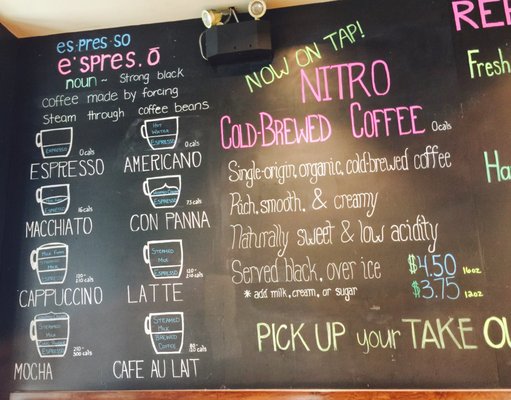 es·pres·so
e'spres.ō
noun ~ Strong black
coffee made by forcing
Steam through coffee beans
ESPRESSO
0 cals
ESPRESSO
HOT
WATER
ESPRESSO
0 cals
AMERICANO
ESPRESSO
MACCHIATO
ESPRESSO
75 cals
CON PANNA
ESPRESSO
CAPPUCCINO
STEAMED
MILK
ESPRESSO
LATTE
STEAMED
MILK
ESPRESSO
cals
MOCHA
STEAMED
MILK
BREWED
COFFEE
cals
CAFE AU LAIT
NOW ON TAP!
NITRO
COLD-BREWED COFFEE 0 cals
Single-origin, organic, cold-brewed coffee
Rich, smooth, & creamy
Naturally sweet & low acidity
Served black, over ice
* add milk, cream, or sugar
$4.50 16oz
$3.75 12oz
PICK UP your TAKE OU
Fresh